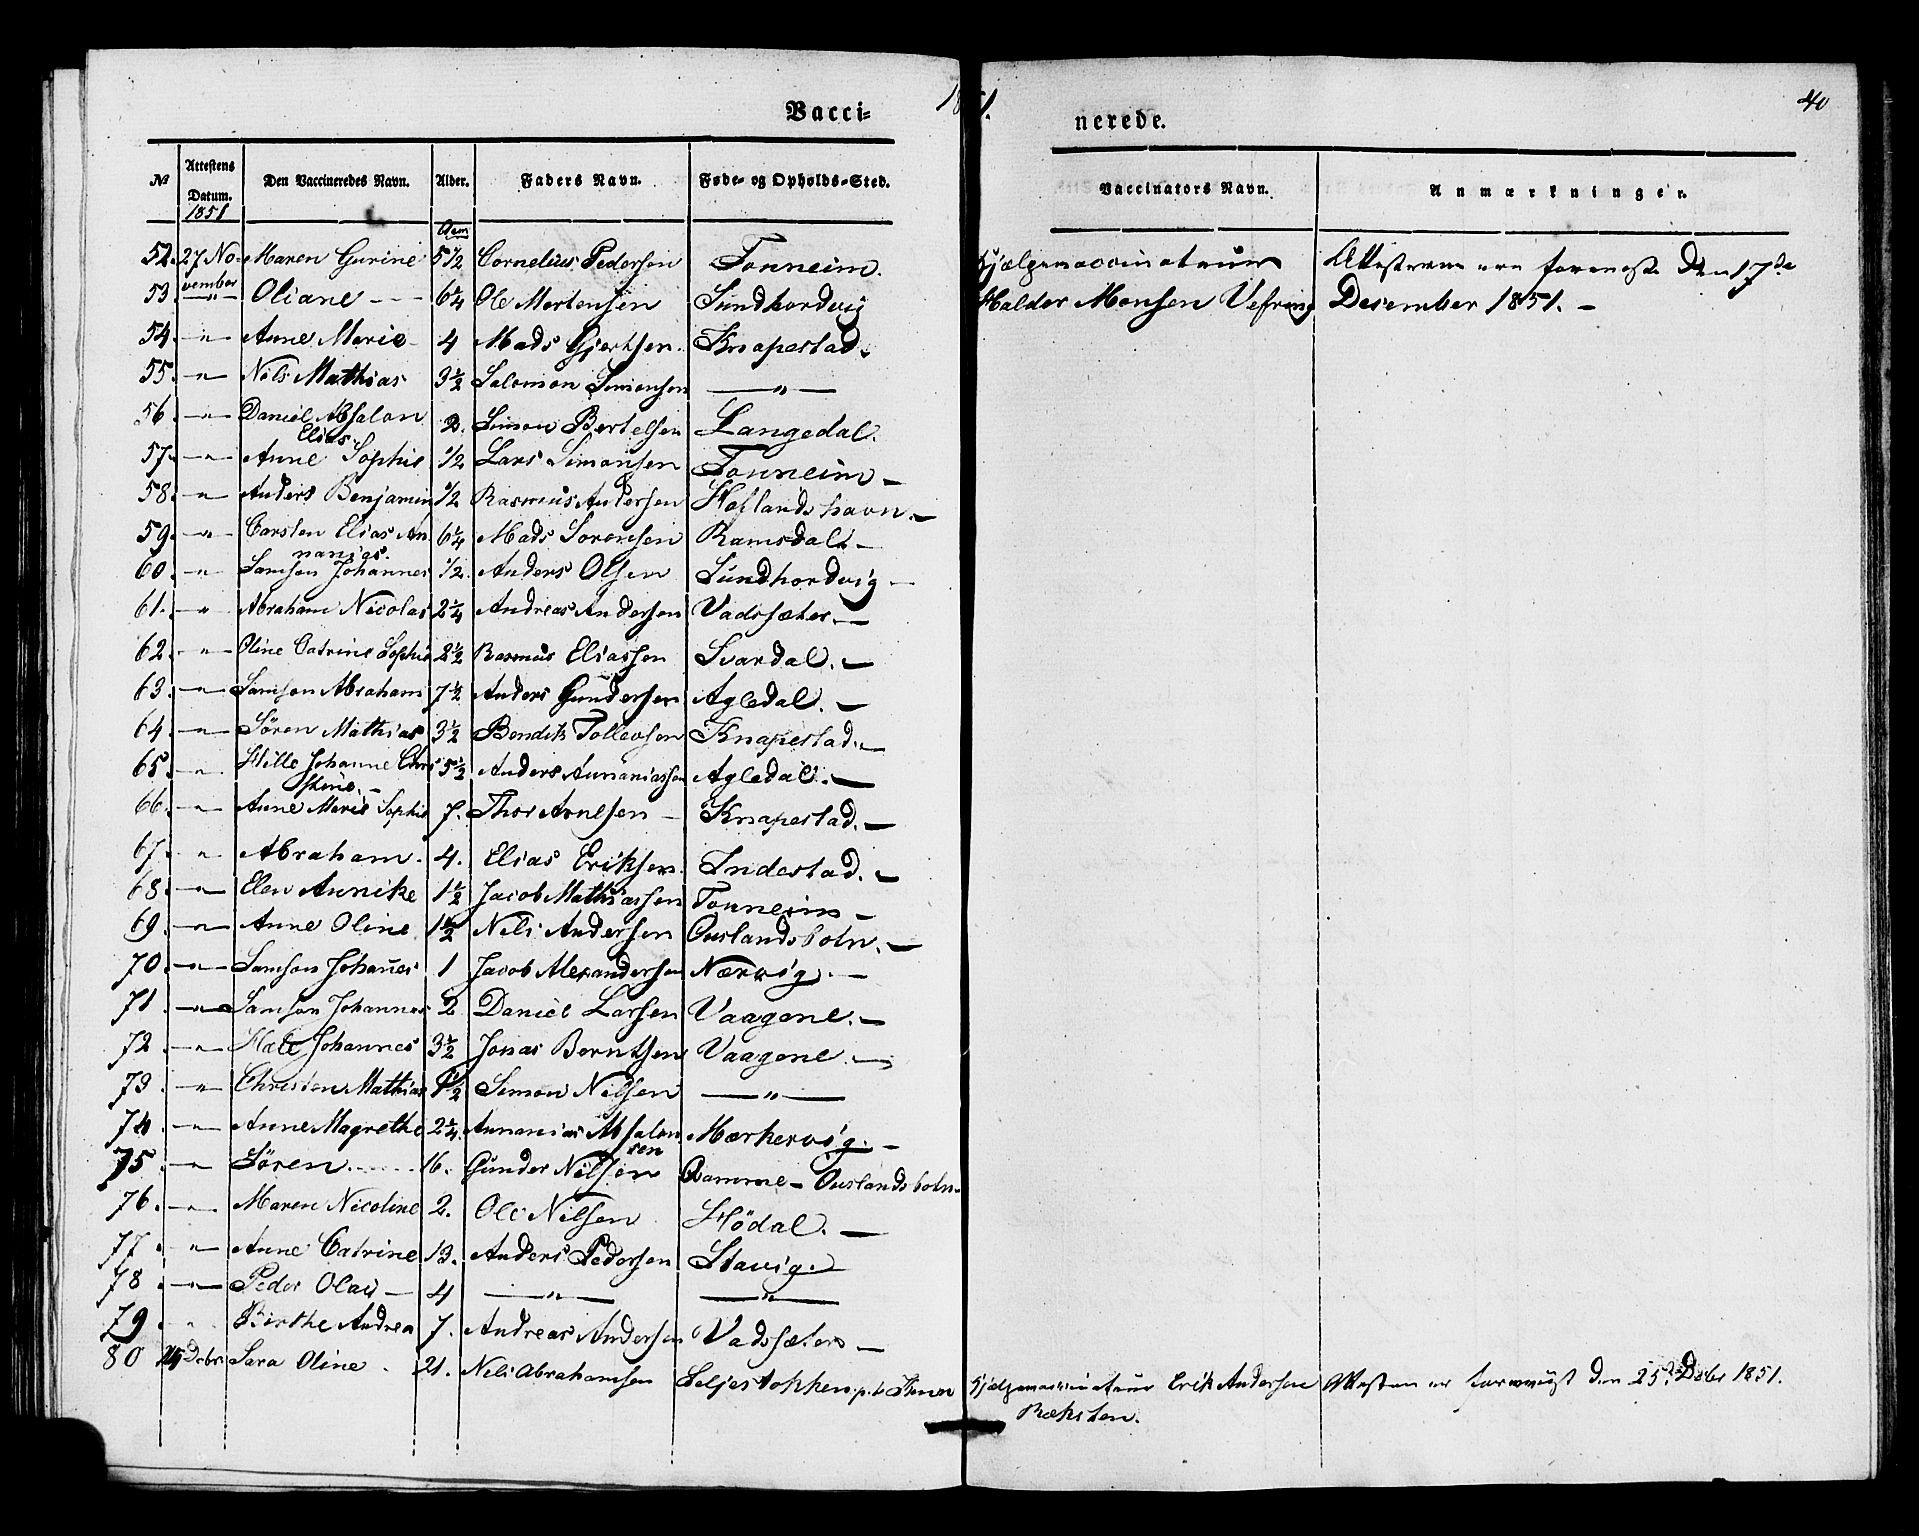 1851.
40
Vaccinerede.
№ | Attestens Datum. | Den Vaccineredes Navn. | Alder. | Faders Navn. | Føde- og Opholds-Sted. | Vaccinators Navn. | Anmærkninger.
1851 | Aar
52. 27 November Maren Gurine 5 1/2 Cornelius Pedersen Tonneim. Hjælpevaccinateur Attesterne ere fornegte den 17de
53 —"— Oliane - - - 6 1/4 Ole Mortensen Sundhordvig Haldor Monsen Vefring December 1851. -
54. —"— Anne Marie 4 Mads Gjertsen. Knapestad.
55. —"— Nils Mathias 3 1/2 Salomon Simonsen —"—
56 —"— Daniel Absalon Elias. 2. Simon Bertelsen Langedal.
57. —"— Anne Sophie 1/2 Lars Simonsen Tonneim —
58. —"— Anders Benjamin 1/2 Rasmus Andersen Heflandshavn. —
59. —"— Carsten Elias Annanias. 6 1/4 Mads Sørensen Ramsdal. —
60. " Samson Johannes 1/2. Anders Olsen Sundhordvig —
61. " Abraham Nicolas 2 1/4 Andreas Andersen Vadsæter. —
62. —"— Oline Catrine Sophie 2 1/2 Rasmus Eliassen Svardal. —
63. —"— Samson Abraham 7 1/2 Anders Gundersen Agledal. —
64. —"— Sören Mathias 3 1/2 Bendik Tollevsen Knapestad. —
65. —"— Hille Johanne Christine. - 5 1/2 Anders Annaniassen Agledal. —
66. —"— Anne Marie Sophie 7. Thor Arnesen — Knapestad. —
67. —"— Abraham. 4. Elias Eriksen. Indestad. —
68. —"— Elen Annike 1 1/2 Jacob Mathiassen Tonneim —
69. —"— Anne Oline 1 1/2 Nils Andersen Ouslandsbotn. —
70. —"— Samson Johannes 1 Jacob Alexandersen Nærvig. —
71. —"— Samson Johannes 2 Daniel Larsen Vaagene. —
72 —"— Hate Johannes 3 1/2 Jonas Berntsen Vaagene —
73 —"— Christen Mathias 1/2 Simon Nilsen —"—
74 —"— Anne Magrethe 2 1/4. Annanias Absalonsen Mærkesvig. —
75 —"— Sören. - - - - 16. Gunder Nilsen Qvamme - Ouslandsbotn -
76. —"— Maren Nicoline 2. Ole Nilsen Hödal. —
77. " Anne Catrine 13. Anders Pedersen Stavig. —
78 —"— Peder Olai — 4 —"— —"—
79 " Birthe Andrea 7. Andreas Andersen Vadsæter —
80 Debr. Sara Oline - 21. Nils Abrahamsen Seljestokken Hjælpevaccinateur Erik Andersen Ræksten. Attesten er fornegt den 25. Debr 1851.